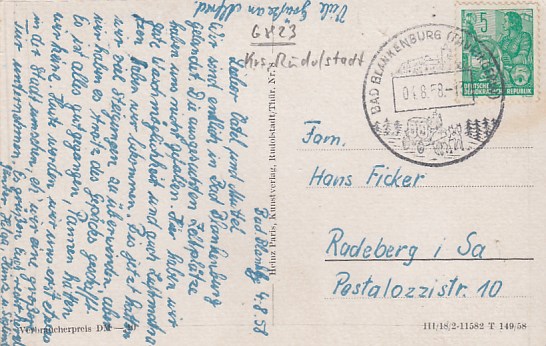 Viele Grüße an Alfred.
GX23
Krs. Rudolstadt
BAD BLANKENBURG (THÜR. WALD)
04.8.58
5
DEUTSCHE DEMOKRATISCHE REPUBLIK
Bad Blankbg 4.8.58
Lieber Vati und Mutti
Wir sind endlich in Bad Blankenburg
gelandet. Die ausgesuchten Zeltplätze
haben uns nicht gefallen. Hier haben wir
gute und
haben wir bekommen. Bis jetzt hatten
wir viel Steigungen zu überwinden, aber
wir haben es trotz des Gepäcks geschafft.
Es ist alles gut gegangen, Pannen hatten
wir keine. Heute werden wir uns erst etwas
in der Stadt umsehen, eh' wir eine größere
unternehmen. Es grüßen Euch
Heinz Paris, Kunstverlag, Rudolstadt/Thür. Nr.
Fam.
Hans Ficker
Radeberg i Sa
Pestalozzistr. 10
Verbraucherpreis DM —.20
III/18/2-11582 T 149/58